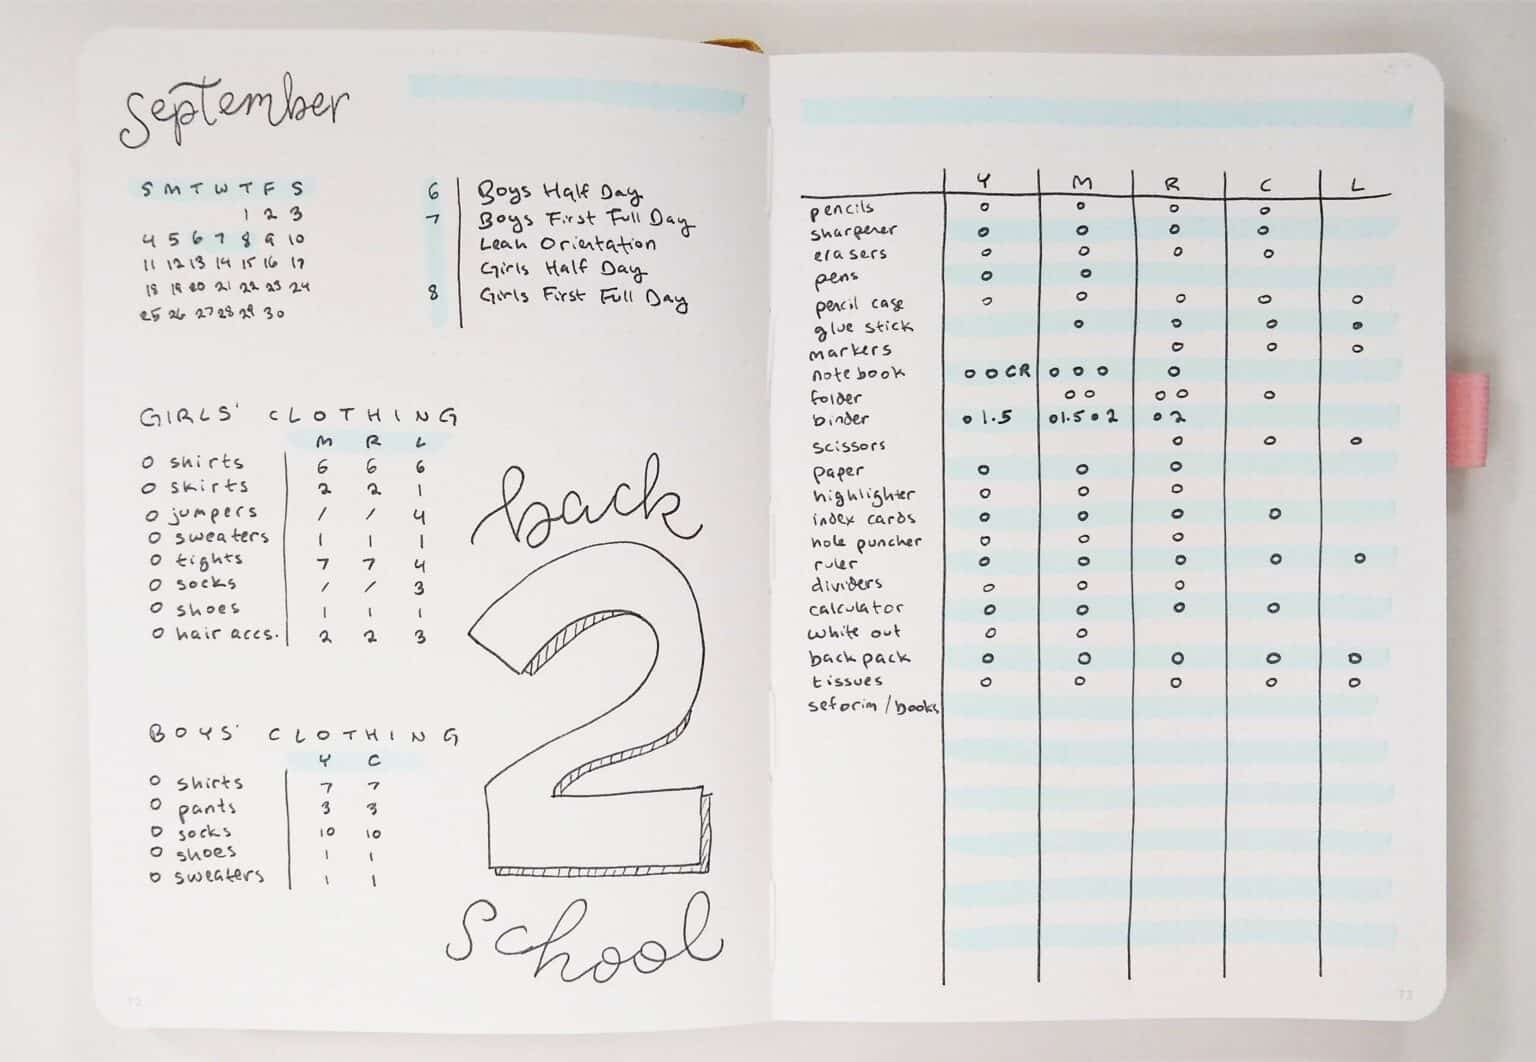 September
S M T W T F S
1 2 3
4 5 6 7 8 9 10
11 12 13 14 15 16 17
18 19 20 21 22 23 24
25 26 27 28 29 30
6 Boys Half Day
7 Boys First Full Day
Leah Orientation
Girls Half Day
8 Girls First Full Day
GIRLS' CLOTHING
M R L
shirts 6 6 6
skirts 2 2 1
jumpers / / 4
sweaters 1 1 1
tights 7 7 4
socks / / 3
shoes 1 1 1
hair accs. 2 2 3
BOYS' CLOTHING
Y C
shirts 7 7
pants 3 3
socks 10 10
shoes 1 1
sweaters 1 1
back
2
school
72
Y M R C L
pencils
sharpener
erasers
pens
pencil case
glue stick
markers
notebook CR
folder
binder 1.5 1.5 2 2
scissors
paper
highlighter
index cards
hole puncher
ruler
dividers
calculator
white out
backpack
tissues
seforim/books
73